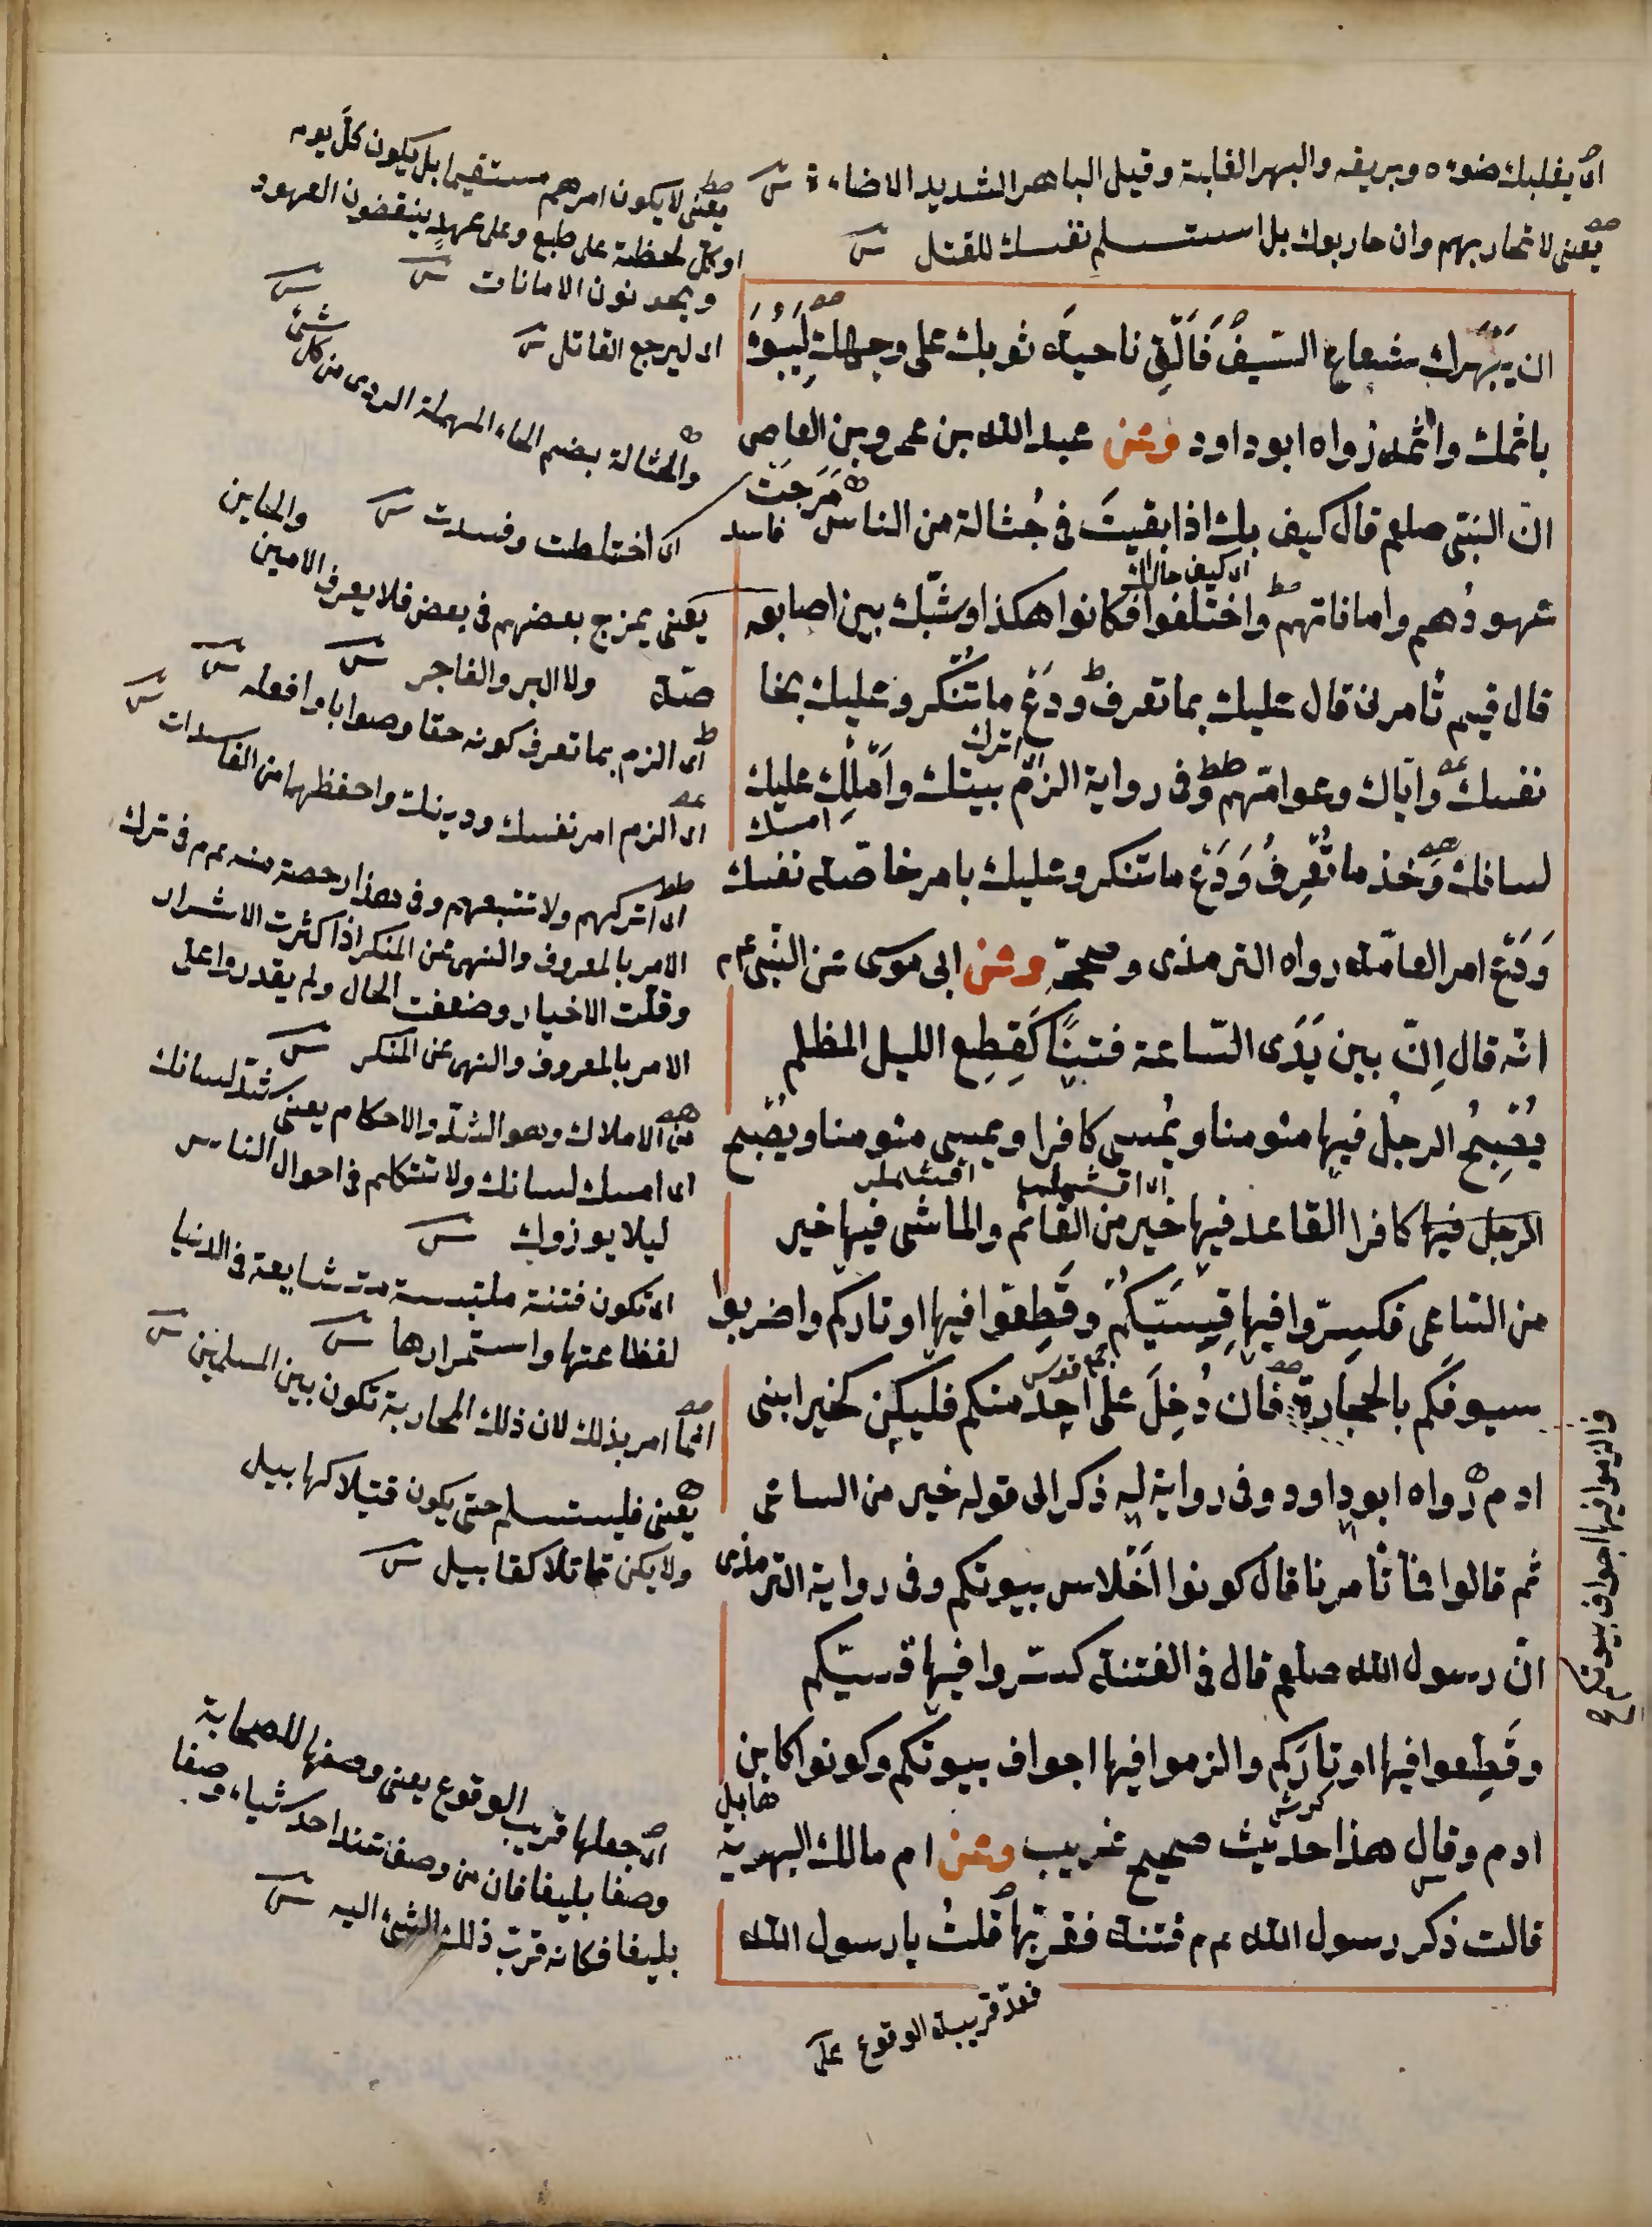 اى يغلبك ضوءه وبريقه والبهر الغلبة وقيل الباهر الشديد الاضاءة ش
يعنى لا تحاربهم وان حاربوك بل استسلم نفسك للقتل ش
ان يَبْهَرك شعاع السّيفُ فَاَلْقِ ناحية ثوبك على وجهك لِيَبُوْءَ
باثمك واثمه رواه ابو داود وعن عبد الله بن عمرو بن العاص
انّ النبىّ صلعم قال كيف بك اذا بقيتَ فى حُثالة من الناس مَرَجَتْ
فاسد
اى كيف حالك
عهودُهم واماناتهم واختلفوا فكانوا هكذا وشبّك بين اصابعه
قال فبم تأمرنى قال عليك بما تعرف ودَعْ ما تُنْكر وعليك بخا
اترك
نفسك واياك وعوامّهم وفى رواية الزَمْ بيتك واَمْلِكْ عليك
امسك
لسانك وخذ ما تَعْرِفُ وَدَعْ ما تنكر وعليك بامر خاصّة نفسك
وَدَعْ امر العامّة رواه الترمذى وصححه وعن ابى موسى عن النّبىّ عم
انّه قال اِنّ بين يَدَى السّاعة فتناً كَقِطع الليل المظلم
يُصْبِحُ الرجلُ فيها مئومنا ويُمسى كافرا ويمسى مئومنا ويُصْبح
الرجل فيها كافرا القاعد فيها خير من القائم والماشى فيها خير
من السّاعى فكسِّروا فيها قِسِيَّكُمْ وقَطِّعوا فيها اوتاركم واضربوا
جمع قوس
سيوفكم بالحجارة فان دُخِلَ على احد منكم فليكن كخير ابنى
ادم رواه ابو داود وفى رواية له ذكر الى قوله خير من الساعى
ثم قالوا فما تأمرنا قال كونوا اَحْلاس بيوتكم وفى رواية الترمذى
انّ رسول الله صلعم قال فى الفتنة كسّروا فيها قسيّكم
وقَطِّعوا فيها اوتارَكم والزموا فيها اجواف بيوتكم وكونوا كابن
هابيل
ادم وقال هذا حديث صحيح غريب وعن ام مالك البهزية
قالت ذكر رسول الله عم فتنة فقرّبها قلتُ يا رسول الله
فعدّ قريبة الوقوع على
والزموا فيها اجواف بيوتكم
يعنى لا يكون امرهم مستقيما بل يكون كلّ يوم
او كل لحظة على طبع وعلى عهدٍ ينقضون العهود
ويخونون الامانات ش
اى ليرجع القاتل ش
والحثالة بضم الحاء المهملة الردى من كل شئ ش
اى اختلطت وفسدت ش
يعنى يمزج بعضهم فى بعض فلا يعرف الامين
والخاين
ولا البر والفاجر ش
صّة
اى الزم بما تعرف كونه حقا وصوابا وافعله ش
اى الزم امر نفسك ودينك واحفظها من الفاسدات ش
اى اتركهم ولا تتبعهم وفى هذا رخصة منه عم فى ترك
الامر بالمعروف والنهى عن المنكر اذا كثرت الاشرار
وقلّت الاخيار وضعفت الحال ولم يقدروا على
الامر بالمعروف والنهى عن المنكر ش
من الاملاك وهو الشدّ والاحكام يعنى شدّ لسانك
اى امسك لسانك ولا تتكلم فى احوال الناس
ليلا يوذوك ش
اى تكون فتنة ملتبسة شايعة فى الدنيا
لفظاعتها واستمرارها ش
انما امر بذلك لان ذلك المحاربة تكون بين المسلمين ش
يعنى فليستسلم حتى يكون قتيلا كهابيل
ولا يكن قاتلا كقابيل ش
اى جعلها قريب الوقوع يعنى وصفها للصحابة
وصفا بليغا فان من وصف عند احد شياء وصفا
بليغا فكانه قرّب ذلك الشئ اليه ش